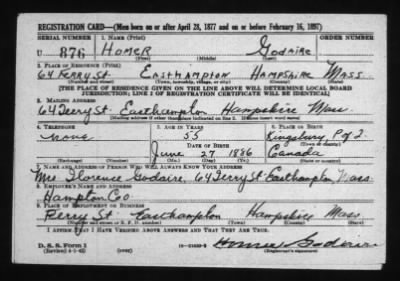 REGISTRATION CARD—(Men born on or after April 28, 1877 and on or before February 16, 1897)
SERIAL NUMBER 1. NAME (Print) ORDER NUMBER
U 876 HOMER Godaire
(First) (Middle) (Last)
2. PLACE OF RESIDENCE (Print)
64 FERRY St. EASTHAMPTON HAMPSHIRE MASS
(Number and street) (Town, township, village, or city) (County) (State)
[THE PLACE OF RESIDENCE GIVEN ON THE LINE ABOVE WILL DETERMINE LOCAL BOARD
JURISDICTION; LINE 2 OF REGISTRATION CERTIFICATE WILL BE IDENTICAL]
3. MAILING ADDRESS
64 Ferry St. Easthampton Hampshire Mass
[Mailing address if other than place indicated on line 2. If same insert word same]
4. TELEPHONE 5. AGE IN YEARS 6. PLACE OF BIRTH
none 55 Kingsbury, P of Q.
DATE OF BIRTH (Town or county)
June 27 1886 Canada
(Exchange) (Number) (Mo.) (Day) (Yr.) (State or country)
7. NAME AND ADDRESS OF PERSON WHO WILL ALWAYS KNOW YOUR ADDRESS
Mrs. Florence Godaire, 64 Ferry St Easthampton, Mass.
8. EMPLOYER'S NAME AND ADDRESS
Hampton Co
9. PLACE OF EMPLOYMENT OR BUSINESS
Ferry St. Easthampton Hampshire Mass
(Number and street or R. F. D. number) (Town) (County) (State)
I AFFIRM THAT I HAVE VERIFIED ABOVE ANSWERS AND THAT THEY ARE TRUE.
D. S. S. Form 1
(Revised 4-1-42) (over) Homer Godaire
(Registrant's signature)